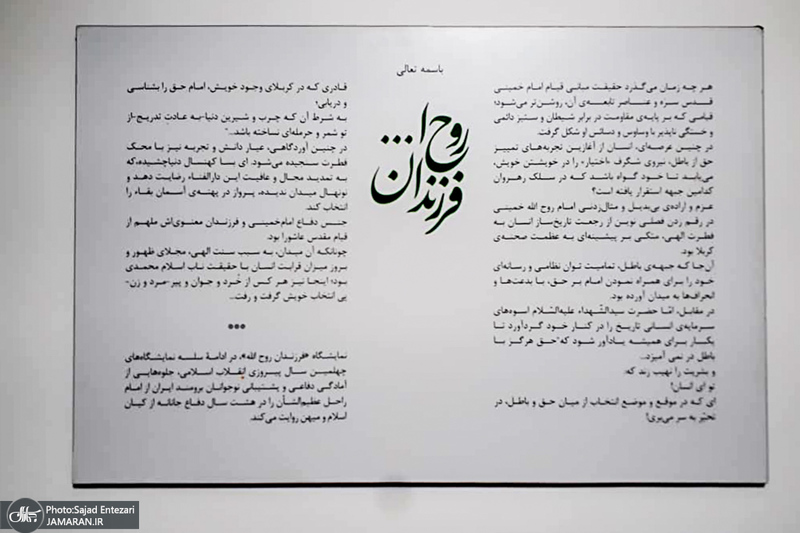 باسمه تعالی
فرزندان روح ا...
هر چه زمان می‌گذرد حقیقت مبانی قیام امام خمینی
قدس سره و عناصر تابعه‌ی آن، روشن‌تر می‌شود؛
قیامی که بر پایه‌ی مقاومت در برابر شیطان و ستیز دائمی
و خستگی ناپذیر با وساوس و دسائس او شکل گرفت.
در چنین عرصه‌ای، انسان از آغازین تجربه‌های تمییز
حق از باطل، نیروی شگرف «اختیار» را در خویشتن خویش،
می‌یابد تا خود گواه باشد که در سلک رهروان
کدامین جبهه استقرار یافته است؟
عزم و اراده‌ی بی‌بدیل و مثال‌زدنی امام روح الله خمینی
در رقم زدن فصلی نوین از رجعت تاریخ‌ساز انسان به
فطرت الهی، متکی بر پیشینه‌ای به عظمت صحنه‌ی
کربلا بود.
آن‌جا که جبهه‌ی باطل، تمامیت توان نظامی و رسانه‌ای
خود را برای همراه نمودن امام بر حق، با بدعت‌ها و
انحراف‌ها به میدان آورده بود.
در مقابل، امّا حضرت سیدالشّهداء علیه‌السّلام اسوه‌های
سرمایه‌ی انسانی تاریخ را در کنار خود گردآورد تا
یکبار برای همیشه یادآور شود که "حق هرگز با
باطل در نمی آمیزد...
و بشریت را نهیب زند که:
تو ای انسان!
ای که در موقع و موضع انتخاب از میان حق و باطل، در
تحیّر به سر می‌بری!
قادری که در کربلای وجود خویش، امام حق را بشناسی
و دریابی؛
به شرط آن که چرب و شیرین دنیا-به عادتِ تدریج-از
تو شمر و حرمله‌ای نساخته باشد..."
در چنین آوردگاهی، عیار دانش و تجربه نیز با محک
فطرت سنجیده می‌شود. ای بسا کهنسال دنیاچشیده،که
به تمدید مجال و عافیت این دارالفناء رضایت دهد و
نونهال میدان ندیده، پرواز در پهنه‌ی آسمان بقاء را
انتخاب کند.
جنس دفاع امام‌خمینی و فرزندان معنوی‌اش ملهم از
قیام مقدس عاشورا بود.
چونانکه آن میدان، به سبب سنت الهی، مجلای ظهور و
بروز میزان قرابت انسان با حقیقت ناب اسلام محمدی
بود؛ اینجا نیز هر کس از خُرد و جوان و پیر-مرد و زن-
پی انتخاب خویش گرفت و رفت...
***
نمایشگاه «فرزندان روح الله»، در ادامهٔ سلسه نمایشگاه‌های
چهلمین سال پیروزی انقلاب اسلامی، جلوه‌هایی از
آمادگی دفاعی و پشتیبانی نوجوانان برومند ایران از امام
راحل عظیم‌الشأن را در هشت سال دفاع جانانه از کیان
اسلام و میهن روایت می‌کند.
جماران
Photo:Sajad Entezari
JAMARAN.IR